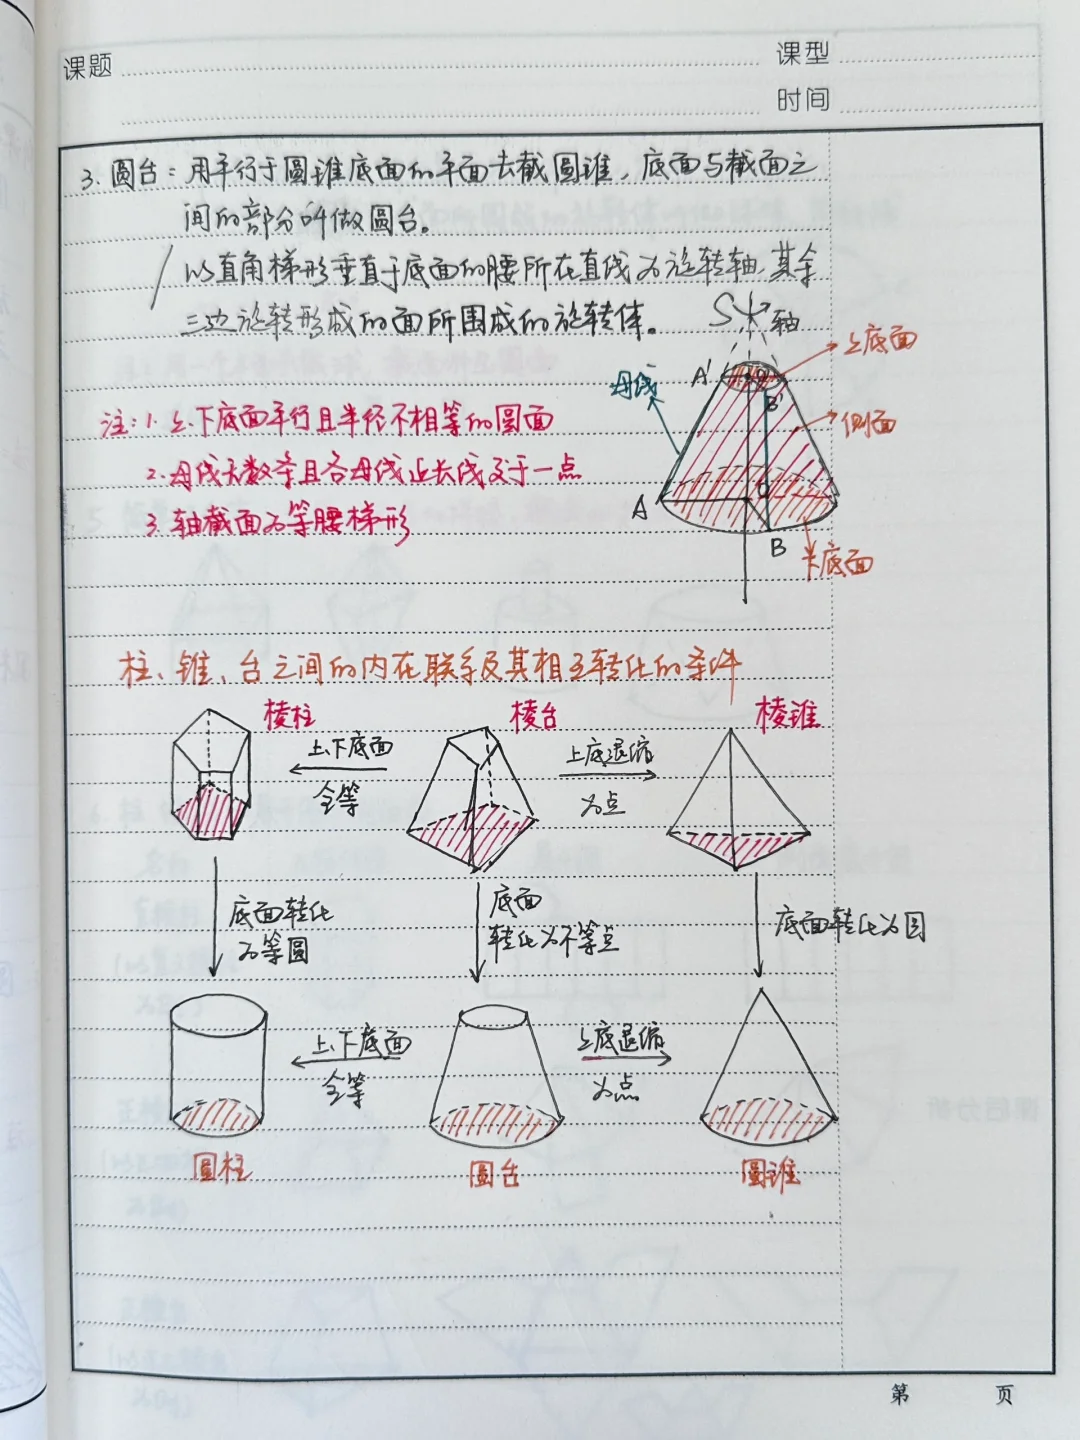 课题
课型
时间
3. 圆台：用平行于圆锥底面的平面去截圆锥，底面与截面之
间的部分叫做圆台。
以直角梯形垂直于底面的腰所在直线为旋转轴，其余
三边旋转形成的面所围成的旋转体。
S
轴
上底面
A'
母线
B'
侧面
A
B
下底面
注：1. 上、下底面平行且半径不相等的圆面
2. 母线无数条且各母线延长线交于一点
3. 轴截面为等腰梯形
柱、锥、台之间的内在联系及其相互转化的条件
棱柱
棱台
棱锥
上、下底面
全等
上底退缩
为点
底面转化
为等圆
底面
转化为不等点
底面转化为圆
上、下底面
全等
上底退缩
为点
圆柱
圆台
圆锥
课后分析
第 页